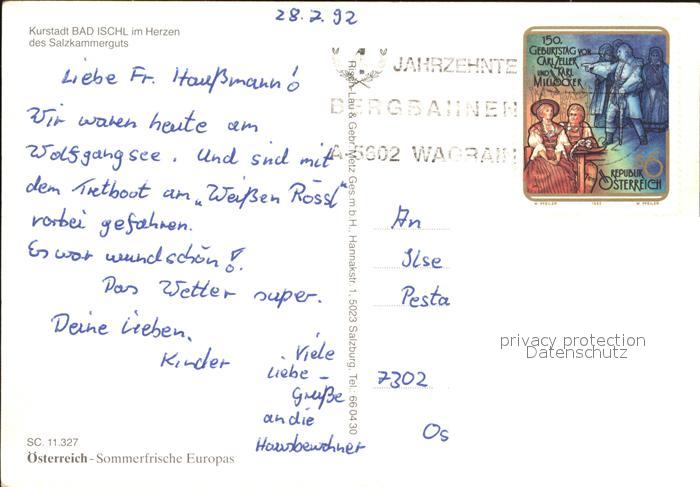 28.7.92
Kurstadt BAD ISCHL im Herzen
des Salzkammerguts
Liebe Fr. Haußmann!
Wir waren heute am
Wolfgangsee. Und sind mit
dem Tretboot am „Weißen Rössl"
vorbei gefahren.
Es war wundschön!
Das Wetter super.
Deine lieben.
Kinder
Viele
liebe -
Grüße
an die
Hausbewohner
SC. 11.327
Österreich - Sommerfrische Europas
Rigen-Lau & Gebr. Metz Ges.m.b.H., Hannakstr. 1, 5023 Salzburg, Tel.: 66 04 30
JAHRZEHNTE
BERGBAHNEN
A-5602 WAGRAIN
150.
GEBURTSTAG VON
CARL ZELLER
UND KARL
MILLÖCKER
S6
REPUBLIK
ÖSTERREICH
W. PFEILER 1992 W. PFEILER
An
Ilse
Pesta
7302
Os
privacy protection
Datenschutz